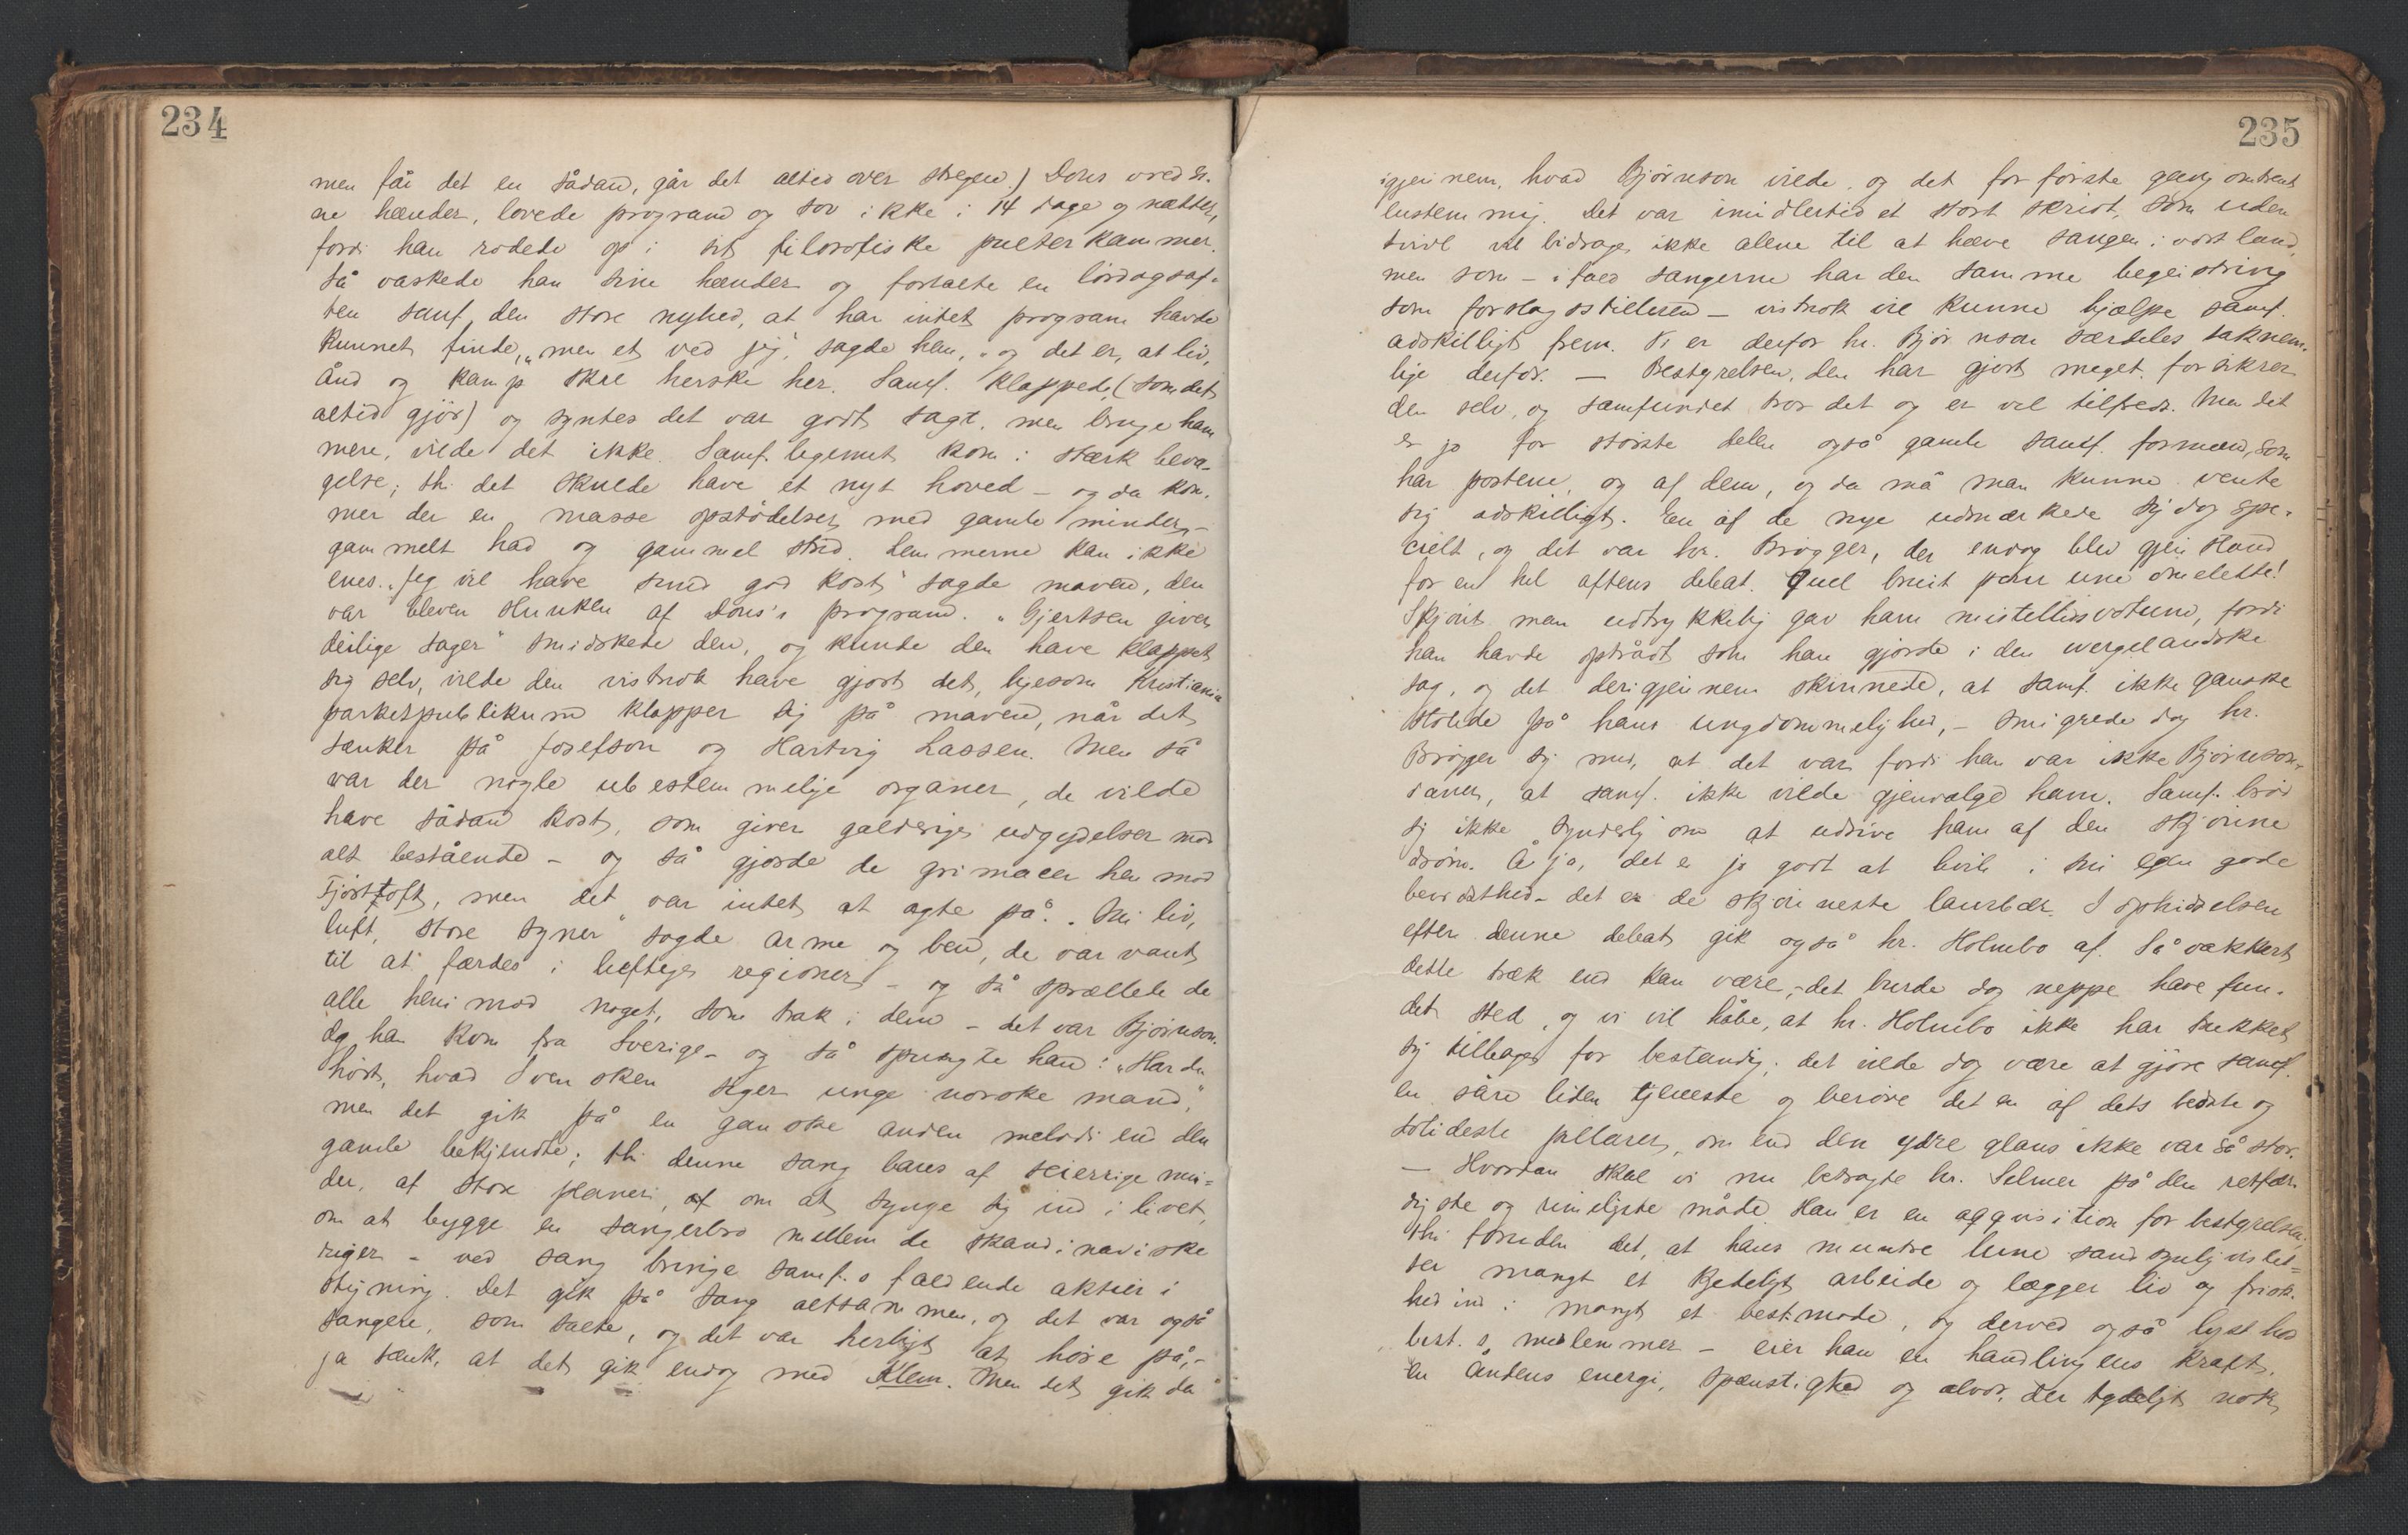 234
men får det en sådan, går det altid over stregen.) Dons vred si-
ne hænder, lovede program og sov ikke i 14 dage og nætter,
fordi han rodede op i sit filosofiske pulterkammer.
Så vaskede han sine hænder og fortalte en lördagsaf-
ten samf. den store nyhed, at han intet program havde
kunnet finde, „men et ved jeg", sagde han, „og det er, at liv,
ånd og kamp skal herske her. Samf. klappede, (som det
altid gjör) og syntes det var godt sagt, men bruge ham
mere, vilde det ikke. Samf. legemet kom i stærk bevæ-
gelse; thi det skulde have et nyt hoved – og da kom-
mer der en masse opstödelser med gamle minder, –
gammelt had og gammel strid. Lemmerne kan ikke
enes. „Jeg vil have sund god kost" sagde maven, den
var bleven slunken af Dons's program. „Gjertsen giver
deilige sager" smidskede den, og kunde den have klappet
sig selv, vilde den vistnok have gjort det, ligesom Kristiania
parketpublikum klapper sig på maven, når det
tænker på Josefson og Hartvig Lassen. Men så
var der nogle ubestemmelige organer, de vilde
have sådan kost, som giver galdesyge udgydelser mod
alt bestående – og så gjorde de grimacer hen mod
Fjörtoft, men det var intet at agte på. „Mere liv,
luft, store syner" sagde arme og ben, de var vant
til at færdes i luftige regioner – og så sprællede de
alle hen imod noget, som trak i dem – det var Björnson.
Og han kom fra Sverige – og så spurgte han: „Har du
hört, hvad svensken siger unge norske mand",
men det gik på en ganske anden melodi end den
gamle bekjendte; thi denne sang bares af seierrige min-
der, af store planer, af om at synge sig ind i livet,
om at bygge en sangerbro mellem de skandinaviske
riger – ved sang bringe samf.s faldende aktier i
stigning. Det gik på sang altsammen, og det var også
sangere, som talte, og det var herligt at höre på, –
ja tænk, at det gik endog med Klem. Men det gik da
235
igjennem, hvad Björnson vilde, og det for förste gang omtrent
enstemmig. Det var imidlertid et stort skridt, som uden
tvivl vil bidrage ikke alene til at hæve sangen i vort land,
men som – ifald sangerne har den samme begeistring
som forslagsstilleren – vistnok vil kunne hjælpe samf.
adskilligt frem. Vi er derfor hr. Björnson særdeles taknem-
lige derfor. — Bestyrelsen, den har gjort meget, forsikrer
den selv, og samfundet tror det og er vel tilfreds. Men det
er jo for störste delen også gamle samf. formænd, som
har posterne, og af dem, og da må man kunne vente
sig adskilligt. En af de nye udmærkede sig dog spe-
cielt, og det var hr. Brögger, der endog blev gjenstand
for en hel aftens debat. Quel bruit pour une omelette!
Skjönt man udtrykkelig gav ham mistillidsvotum, fordi
han havde optrådt som han gjorde i den wergelandske
sag, og det derigjennem skinnede, at samf. ikke ganske
stolede på hans ungdommelighed, – smigrede dog hr.
Brögger sig med, at det var fordi han var ikke Björnson-
ianer, at samf. ikke vilde gjenvælge ham. Samf. bröd
sig ikke synderlig om at udrive ham af den skjönne
dröm. Å ja, det er jo godt at hvile i sin egen gode
bevidsthed – det er de skjönneste laurbær. I ophidselsen
efter denne debat gik også hr. Holmbo af. Så vakkert
dette træk end kan være, – det burde dog neppe have fun-
det sted, og vi vil håbe, at hr. Holmbo ikke har trukket
sig tilbage for bestandig; det vilde dog være at gjöre samf.
en såre liden tjeneste og beröve det en af dets bedste og
solideste pillarer, om end den ydre glans ikke var så stor.
— Hvordan skal vi nu betragte hr. Selmer på den retfær-
digste og rimeligste måde. Han er en aqqvisition for bestyrelsen;
thi foruden det, at hans muntre lune sandsynligvis let-
ter mangt et kjedeligt arbeide og lægger liv og frisk-
hed ind i mangt et best.möde, og derved også lyst hos
best.s medlemmer – eier han en handlingens kraft,
en åndens energi, spænstighed og alvor, der tydeligt nok